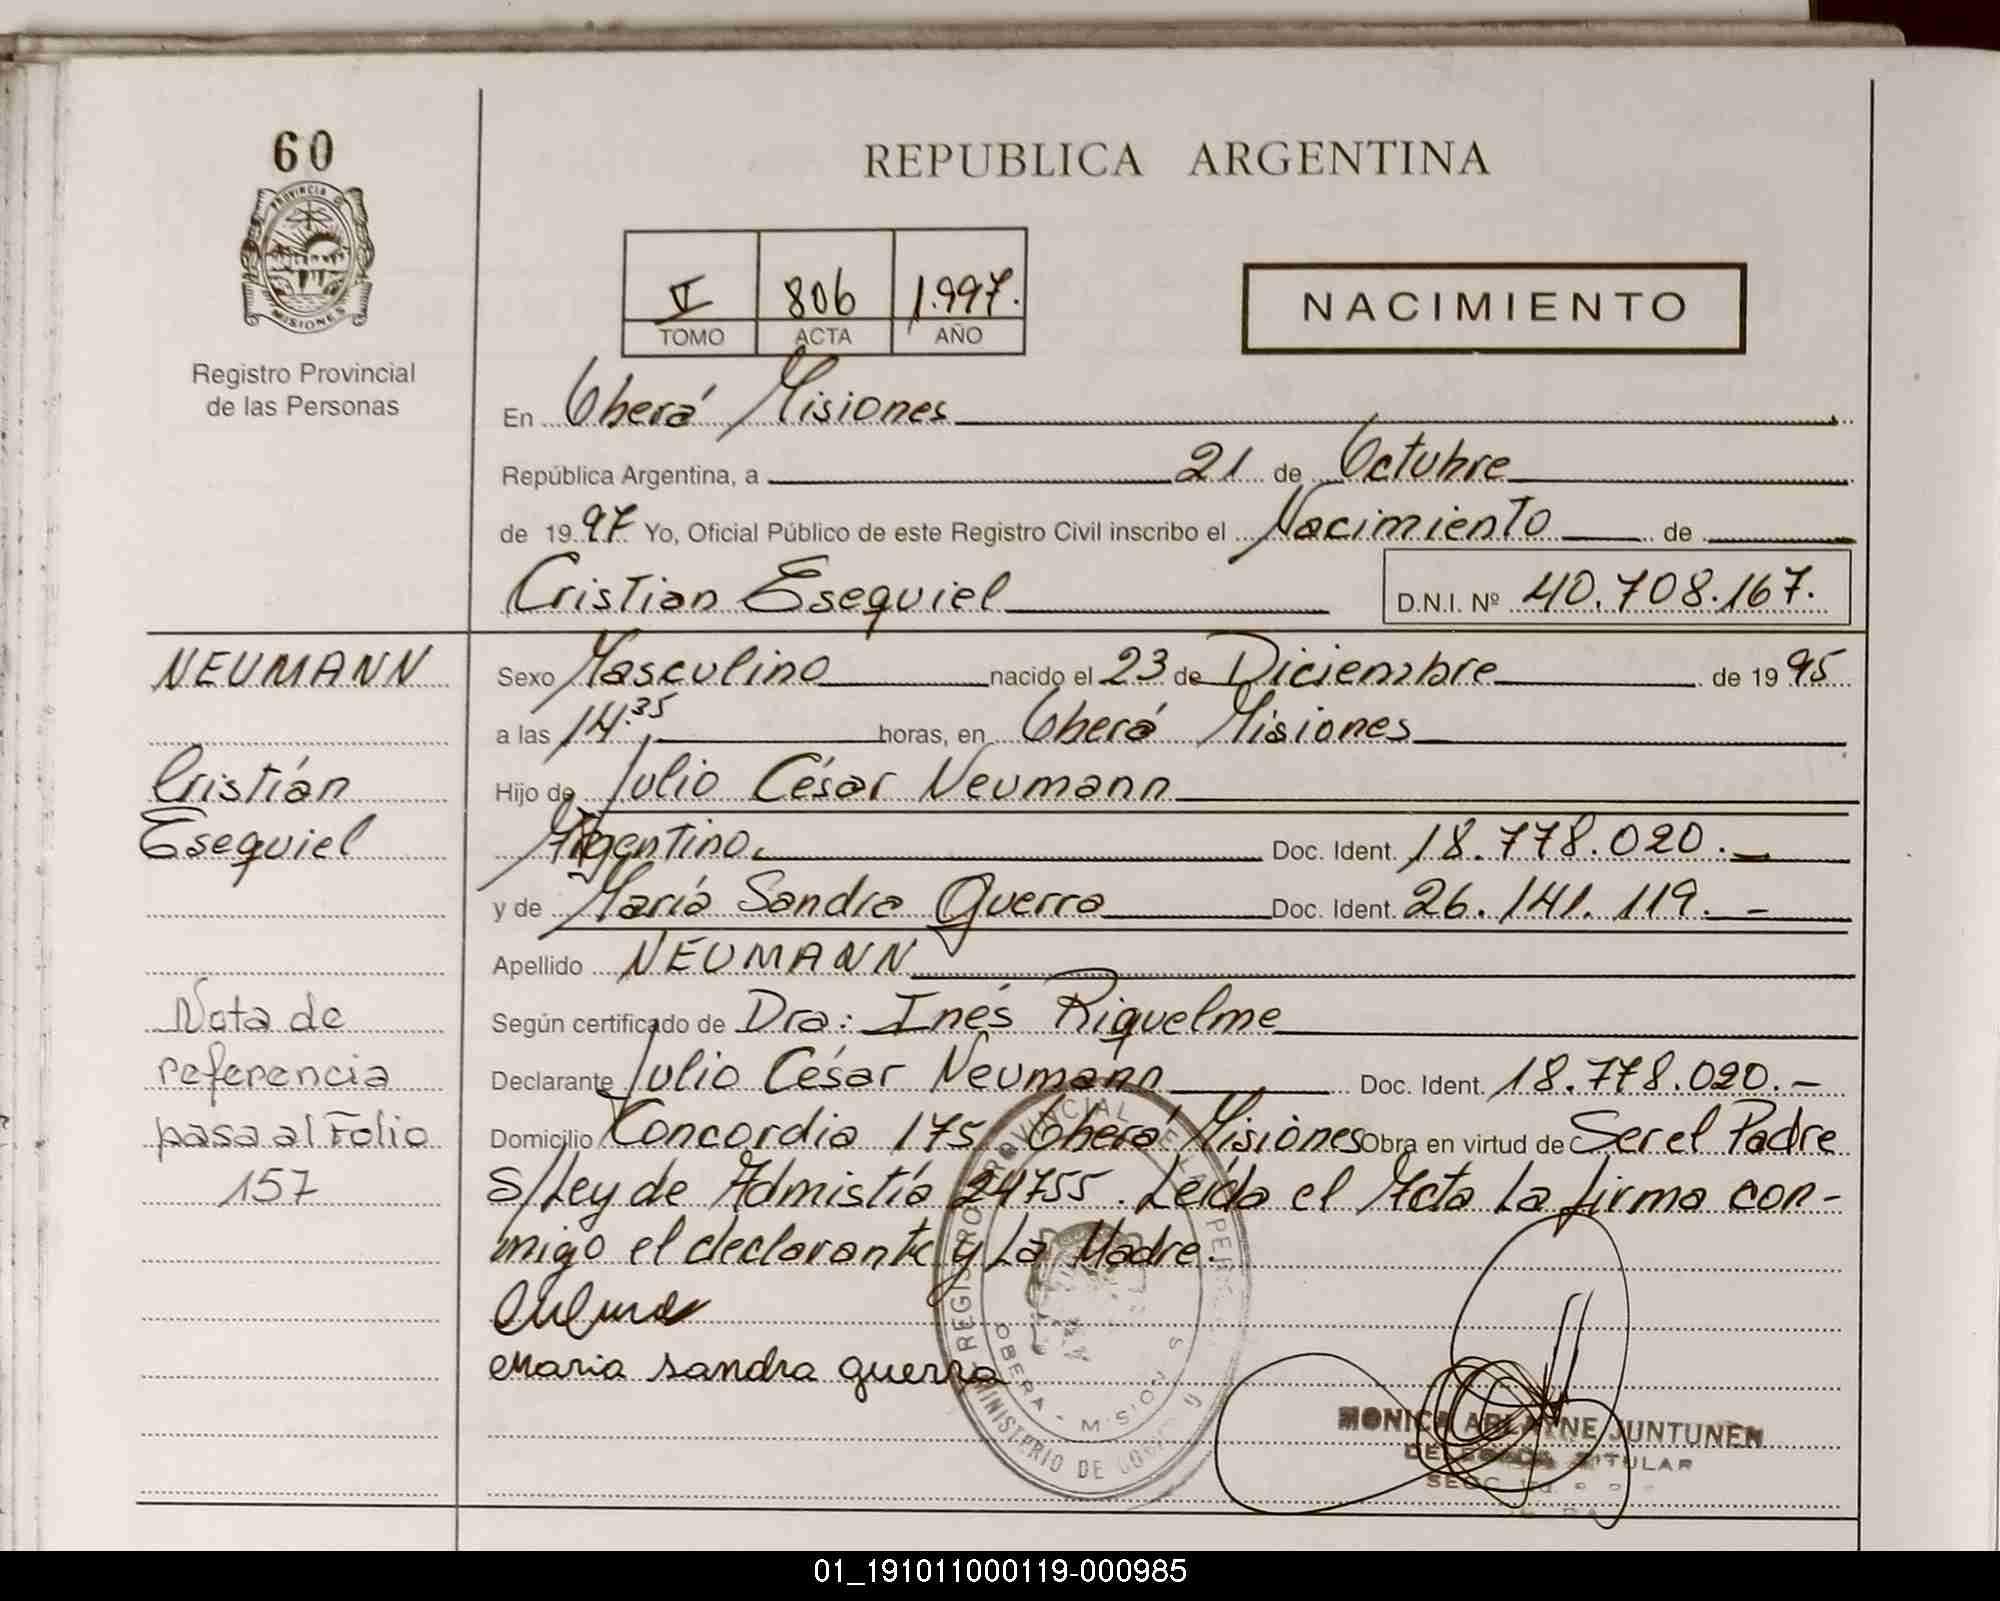 60
PROVINCIA DE
MISIONES
Registro Provincial
de las Personas
REPUBLICA ARGENTINA
V 806 1.997.
TOMO ACTA AÑO
NACIMIENTO
En Oberá Misiones
República Argentina, a 21 de Octubre
de 1997 Yo, Oficial Público de este Registro Civil inscribo el Nacimiento de
Cristian Esequiel D.N.I. Nº 40.708.167.
NEUMANN
Cristián
Esequiel
Nota de
referencia
pasa al Folio
157
Sexo Masculino nacido el 23 de Diciembre de 1995
a las 14.35 horas, en Oberá Misiones
Hijo de Julio César Neumann
Argentino. Doc. Ident. 18.778.020.-
y de María Sandra Guerra Doc. Ident. 26.141.119.-
Apellido NEUMANN
Según certificado de Dra: Inés Riquelme
Declarante Julio César Neumann Doc. Ident. 18.778.020.-
Domicilio Concordia 175 Oberá Misiones Obra en virtud de Ser el Padre
S/Ley de Admistía 24755. Leída el Acta La firma con-
migo el declarante y La Madre.
Maria sandra guerra
REGISTRO PROVINCIAL DE LAS PER
OBERA - MISIONES
MINISTERIO DE GOB
MONICA ARLAYNE JUNTUNEN
DELEGADA TITULAR
01_191011000119-000985